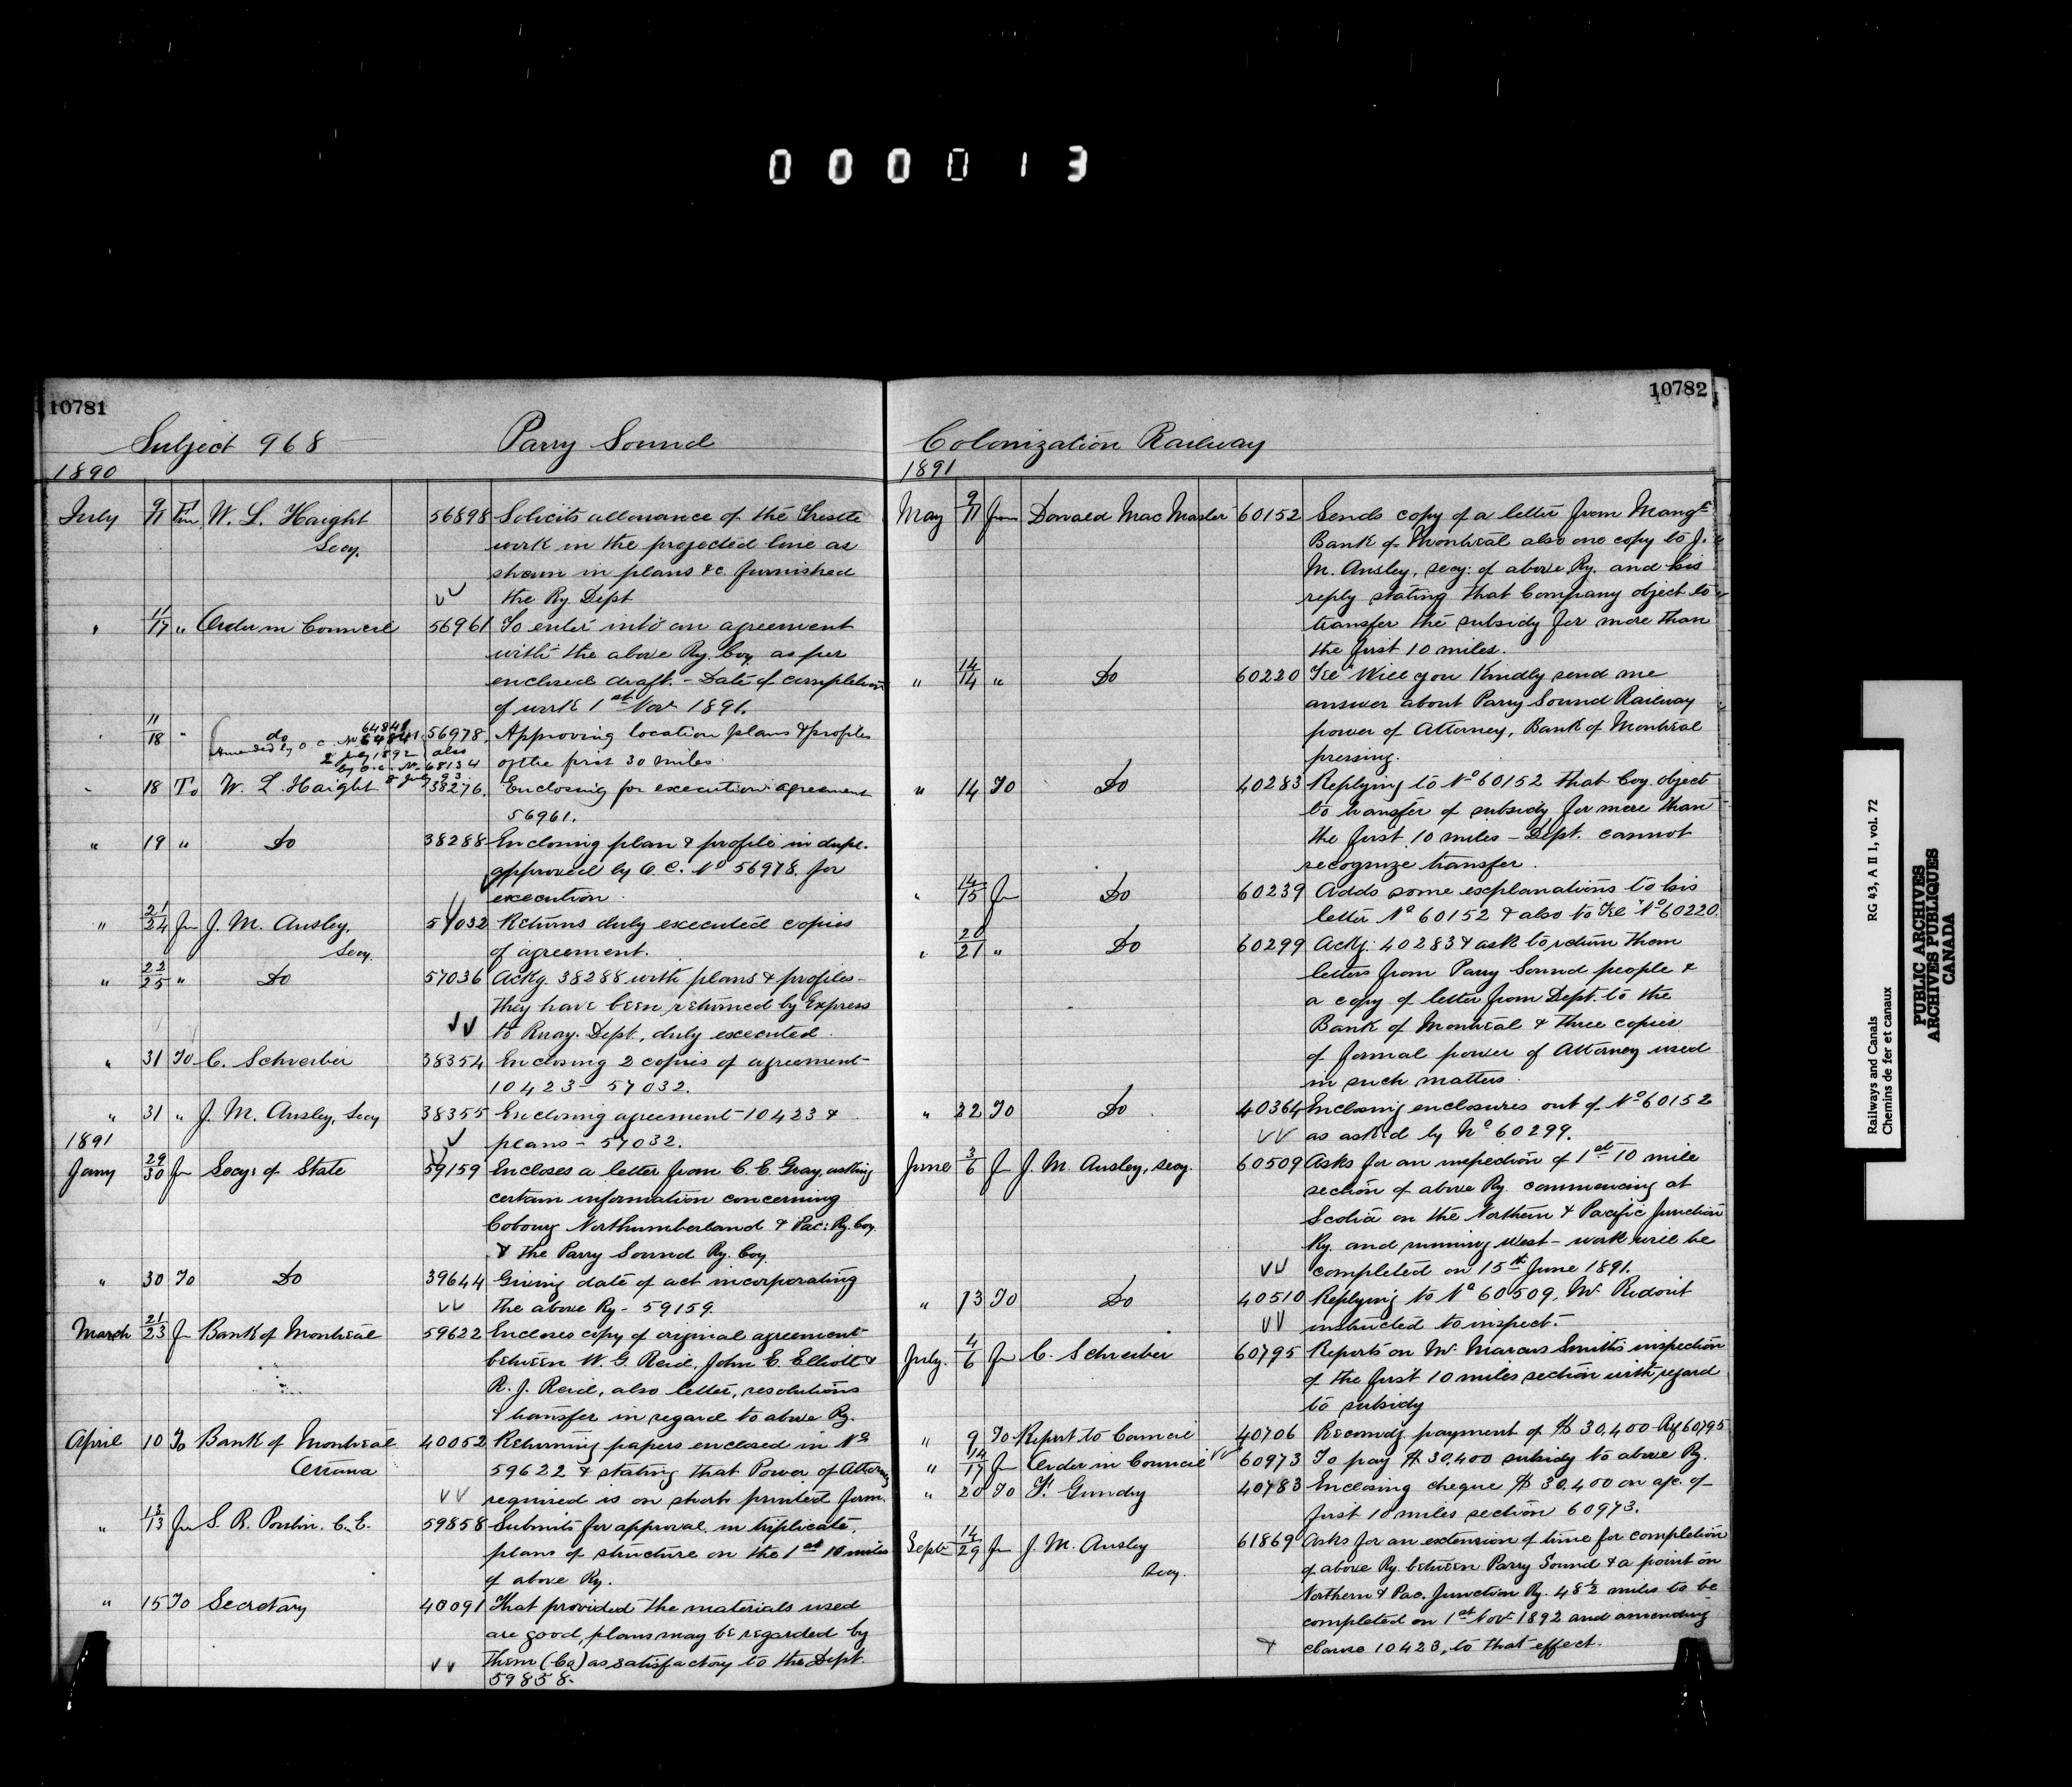 000013
10781
Subject 968 — Parry Sound
1890
July 9/11 Fm W. L. Haight 56898 Solicits allowance of the Trestle
Secy. work in the projected line as
shown in plans &c. furnished
VV the Ry Dept
" 11/17 " Order in Council 56961 To enter into an agreement
with the above Ry. Coy as per
enclosed draft. - Date of completion
of work 1st Nov 1891.
" 11/18 " do 56978 Approving location plans & profiles
Amended by O. C. No 64841 also
2 July 1892
by O.C. No 68134 of the first 30 miles
8 July 93
" 18 To W. L. Haight 38276. Enclosing for execution agreement
56961.
" 19 " Do 38288 Enclosing plan & profile in dupl.
approved by O.C. No 56978. for
execution.
" 21/24 fm J. M. Ansley, 57032 Returns duly executed copies
Secy. of agreement.
" 22/25 " Do 57036 Ackg. 38288 with plans & profiles -
they have been returned by Express
VV to Rway. Dept., duly executed.
" 31 To C. Schreiber 38354 Enclosing 2 copies of agreement
10423 - 57032.
" 31 " J. M. Ansley, Secy 38355 Enclosing agreement 10423 &
1891 V plans - 57032.
Jany 29/30 fm Secy: of State 59159 Encloses a letter from C. E. Gray, asking
certain information concerning
Cobourg Northumberland & Pac: Ry. Coy.
& the Parry Sound Ry. Coy.
" 30 To Do 39644 Giving date of act incorporating
VV the above Ry - 59159.
March 21/23 fm Bank of Montreal 59622 Encloses copy of original agreement
between W. G. Reid, John E. Elliott &
R. J. Reid, also letter, resolutions
& transfer in regard to above Ry.
April 10 To Bank of Montreal 40052 Returning papers enclosed in No
Ottawa 59622 & stating that Power of Attorney
VV required is on short printed form.
" 13/13 fm S. R. Poulin. C.E. 59858 Submits for approval, in triplicate,
plans of structure on the 1st 10 miles
of above Ry.
" 15 To Secretary 40091 That provided the materials used
are good, plans may be regarded by
VV them (Co) as satisfactory to the Dept.
59858.
10782
Colonization Railway
1891
May 9/11 fm Donald MacMaster 60152 Sends copy of a letter from Mangr
Bank of Montreal also one copy to J.
M. Ansley, secy: of above Ry. and his
reply stating that Company object to
transfer the subsidy for more than
the first 10 miles.
" 14/14 " Do 60220 Tel "Will you Kindly send me
answer about Parry Sound Railway
power of Attorney, Bank of Montreal
pressing.
" 14 To Do 40283 Replying to No 60152 that Coy. object
to transfer of subsidy for more than
the first 10 miles - Dept. cannot
recognize transfer.
" 14/15 fm Do 60239 Adds some explanations to his
letter No 60152 & also to Tel No 60220.
" 20/21 " Do 60299 Ackg: 40283 & ask to return them
letters from Parry Sound people &
a copy of letter from Dept. to the
Bank of Montreal & three copies
of formal power of Attorney used
in such matters.
" 22 To Do 40364 Enclosing enclosures out of No 60152
VV as asked by No 60299.
June 3/6 fm J. M. Ansley, secy. 60509 Asks for an inspection of 1st 10 mile
section of above Ry. commencing at
Scotia on the Northern & Pacific Junction
Ry. and running West - work will be
VV completed on 15th June 1891.
" 13 To Do 40510 Replying to No 60509, Mr Ridout
VV instructed to inspect.
July. 4/6 fm C. Schreiber 60795 Reports on Mr Marcus Smith's inspection
of the first 10 miles section with regard
to subsidy
" 9 To Report to Council 40706 Recomdg payment of $30,400 Ref 60795
" 14/17 fm Order in Council VV 60973 To pay $30,400 subsidy to above Ry.
" 20 To F. Gundry 40783 Enclosing cheque $30,400 on a/c. of
first 10 miles section 60973.
Septr 14/29 fm J. M. Ansley 61869 Asks for an extension of time for completion
Secy. of above Ry. between Parry Sound & a point on
Northern & Pac. Junction Ry. 48½ miles to be
completed on 1st Nov 1892 and amending
clause 10423, to that effect.
Railways and Canals RG 43, A II 1, vol. 72
Chemins de fer et canaux
PUBLIC ARCHIVES
ARCHIVES PUBLIQUES
CANADA